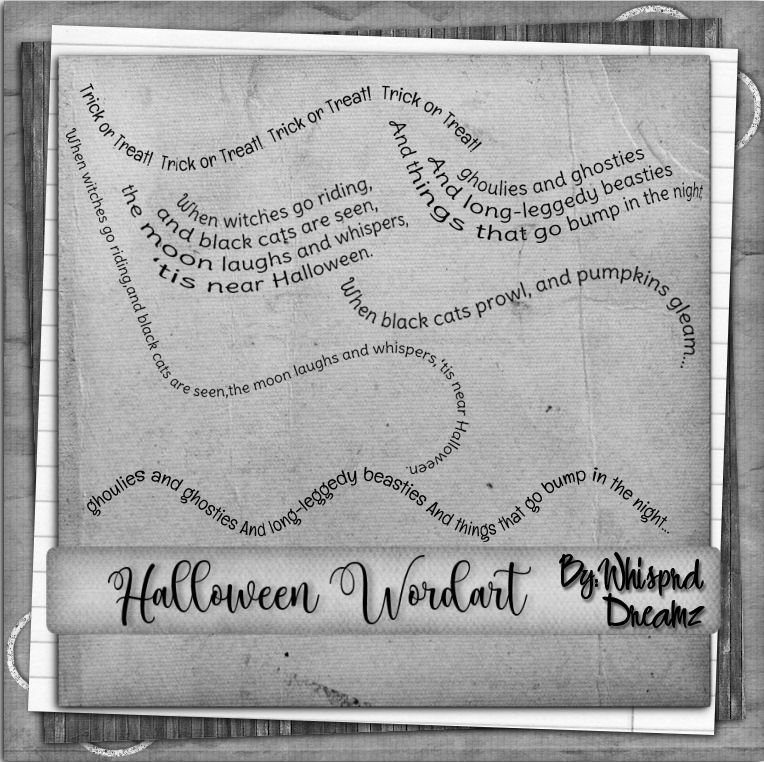 Trick or Treat! Trick or Treat! Trick or Treat! Trick or Treat!
When witches go riding,and black cats are seen,the moon laughs and whispers,'tis near Halloween.
When witches go riding,
and black cats are seen,
the moon laughs and whispers,
'tis near Halloween.
ghoulies and ghosties
And long-leggedy beasties
And things that go bump in the night
When black cats prowl, and pumpkins gleam...
ghoulies and ghosties And long-leggedy beasties And things that go bump in the night...
Halloween Wordart
By:Whisprd
Dreamz